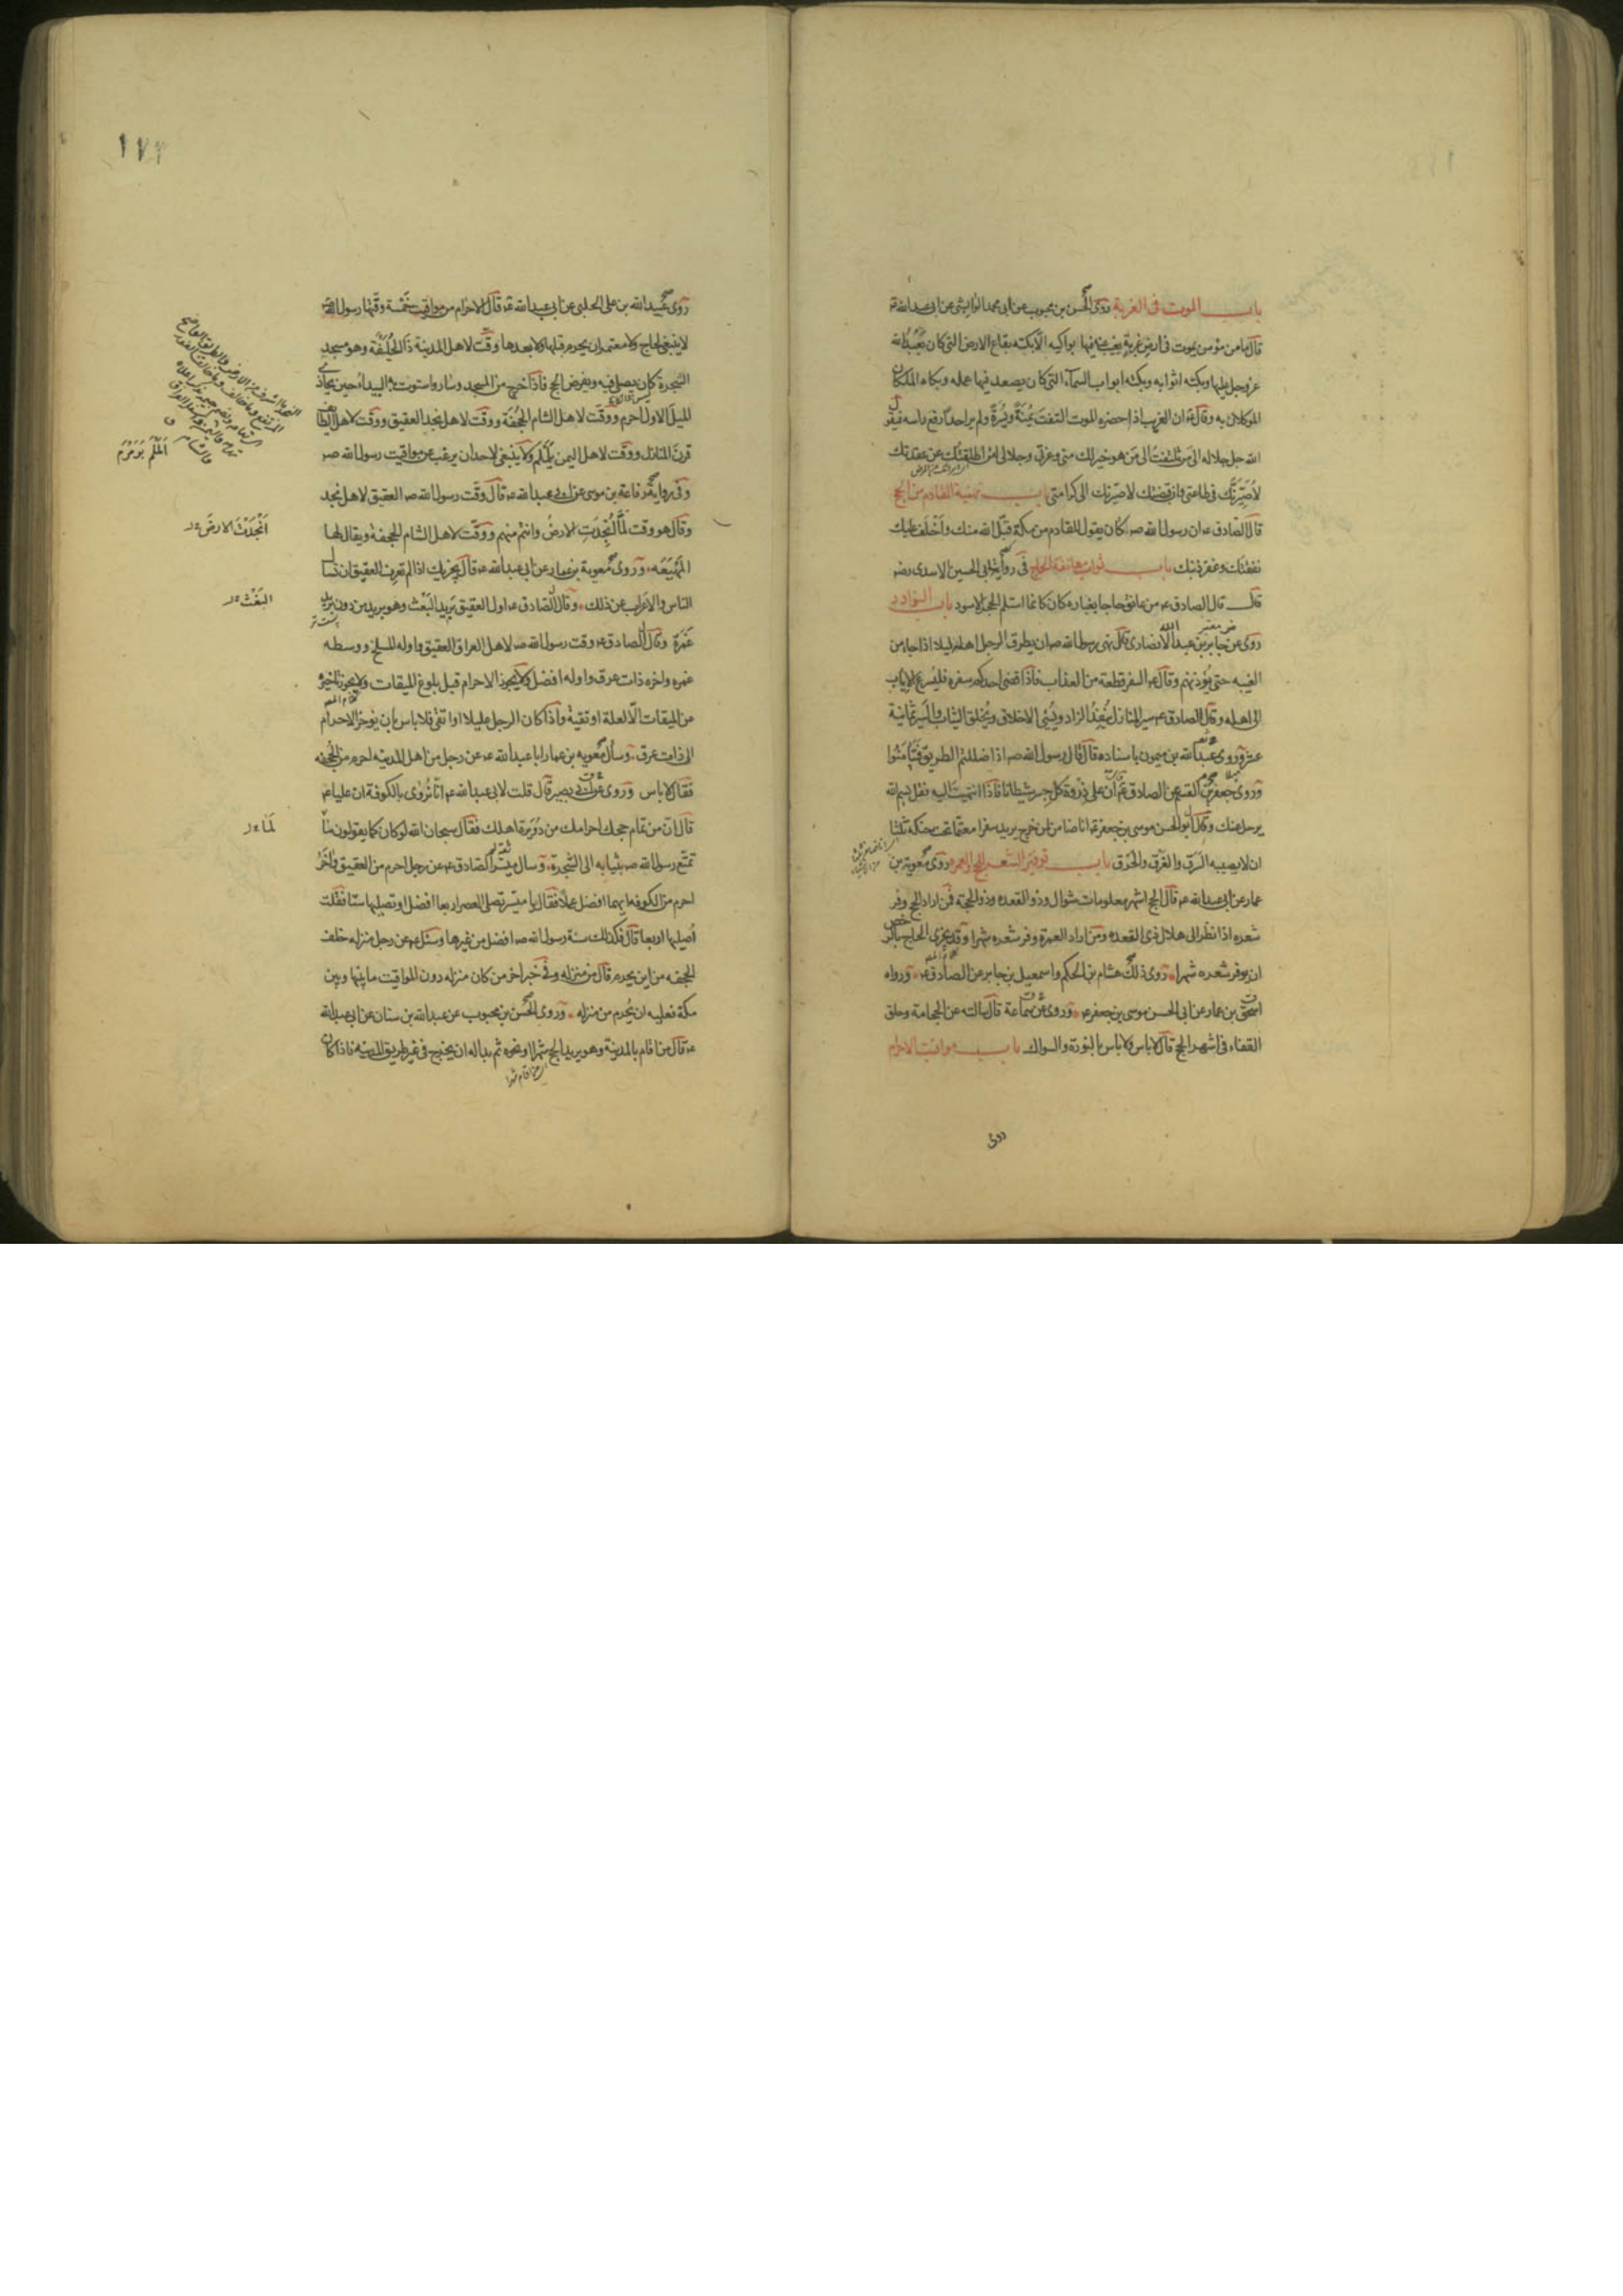 باب الموت فى الغربة روى الحسن بن محبوب عن ابى محمد الوابشى عن ابى عبد الله ع
قال ما من مؤمن يموت فى ارض غربة يغيب عنه فيها بواكيه الا بكته بقاع الارض التى كان يعبد الله
عز وجل عليها وبكته اثوابه وبكته ابواب السمآء التى كان يصعد فيها عمله وبكاه الملكان
الموكلان به وقال ع ان الغريب اذا حضره الموت التفت يمنة ويسرة ولم ير احدا رفع راسه فيقول
الله جل جلاله الى من تلتفت الى من هو خير لك منى وعزتى وجلالى لئن اطلقتك عن عقدتك
لاصيرنك فى طاعتى وان قبضتك لاصيرنك الى كرامتى باب تهنية القادم من الحج
قال الصادق ع ان رسول الله صه كان يقول للقادم من مكة قبل الله منك واخلف عليك
نفقتك وغفر ذنبك باب ثواب معانقة الحاج فى رواية ابى الحسين الاسدى رضه
قال قال الصادق ع من عانق حاجا بغباره كان كانما استلم الحجر الاسود باب النوادر
روى عن جابر بن عبد الله الانصارى قال نهى رسول الله صه ان يطرق الرجل اهله ليلا اذا جاء من
الغيبه حتى يؤذنهم وقال ع السفر قطعة من العذاب فاذا قضى احدكم سفره فليسرع الاياب
الى اهله وقال الصادق ع سير المنازل ينفد الزاد ويسئ الاخلاق ويخلق الثياب والسير ثمانية
عشر وروى عبد الله بن ميمون باسناده قال قال رسول الله صه اذا ضللتم الطريق فتيامنوا
وروى جعفر بن القسم عن الصادق ع قال ان على ذروة كل جسر شيطانا فاذا انتهيت اليه فقل بسم الله
يرحل عنك وقال ابو الحسن موسى بن جعفر ع انا ضامن لمن خرج يريد سفرا معتما تحت حنكه ثلثا
ان لا يصيبه السرق والغرق والحرق باب توفير الشعر للحج والعمره روى معوية بن
عمار عن ابى عبد الله ع قال الحج اشهر معلومات شوال وذو القعده وذو الحجة فمن اراد الحج وفر
شعره اذا نظر الى هلال ذى القعده ومن اراد العمرة وفر شعره شهرا وقد يجزى الحاج بالرخص
ان يوفر شعره شهرا روى ذلك هشام بن الحكم واسمعيل بن جابر عن الصادق ع ورواه
اسحق بن عمار عن ابى الحسن موسى بن جعفر ع وروى عن سماعة قال سالته عن الحجامة وحلق
القفاء فى اشهر الحج قال لا باس ولا باس بالنورة والسواك باب مواقيت الاحرام
روى
١٧٢
روى عبيد الله بن على الحلبى عن ابى عبد الله ع قال الاحرام من مواقيت خمسة وقتها رسول الله
لا ينبغى لحاج ولا معتمر ان يحرم قبلها ولا بعدها وقت لاهل المدينة ذا الحليفة وهو مسجد
الشجرة كان يصلى فيه ويفرض الحج فاذا خرج من المسجد وسار واستوت به البيداء حين يحاذى
الميل الاول احرم ووقت لاهل الشام الجحفة ووقت لاهل نجد العقيق ووقت لاهل الطائف
قرن المنازل ووقت لاهل اليمن يلملم ولا ينبغى لاحد ان يرغب عن مواقيت رسول الله صه
وفى رواية رفاعة بن موسى عن ابى عبد الله ع قال وقت رسول الله صه العقيق لاهل نجد
وقال هو وقت لما انجدت الارض وانتم منهم ووقت لاهل الشام الجحفة ويقال لها
المهيعه وروى معوية بن عمار عن ابى عبد الله ع قال يجزيك اذا لم تعرف العقيق ان تسال
الناس والاعراب عن ذلك وقال الصادق ع اول العقيق بريد البعث وهو بريد من دون بريد
غمرة وقال الصادق ع وقت رسول الله صه لاهل العراق العقيق واوله المسلخ ووسطه
غمره واخره ذات عرق واوله افضل ولا يجوز الاحرام قبل بلوغ الميقات ولا يجوز تاخيره
عن الميقات الا لعلة او تقية واذا كان الرجل عليلا او اتقى فلا باس بان يؤخر الاحرام
الى ذات عرق وسال معويه بن عمار ابا عبد الله ع عن رجل من اهل المدينه احرم من الجحفه
فقال لا باس وروى عن ابى بصير قال قلت لابى عبد الله ع انا نروى بالكوفة ان عليا ع
قال ان من تمام حجك احرامك من دويرة اهلك فقال سبحان الله لو كان كما يقولون ما
تمتع رسول الله صه بثيابه الى الشجرة وسال ميسر الصادق ع عن رجل احرم من العقيق واخر
احرم من الكوفه ايهما افضل عملا فقال يا ميسر تصلى العصر اربعا افضل او تصليها ستا فقلت
اصليها اربعا قال فكذلك سنة رسول الله صه افضل من غيرها وسئل ع عن رجل منزله خلف
الجحفه من اين يحرم قال من منزله وفى خبر اخر من كان منزله دون المواقيت ما بينها وبين
مكة فعليه ان يحرم من منزله وروى الحسن بن محبوب عن عبد الله بن سنان عن ابى عبد الله
ع قال من اقام بالمدينة وهو يريد الحج شهرا او نحوه ثم بدا له ان يخرج فى غير طريق المدينه فاذا كان
انجدت الارض
البغث
لما